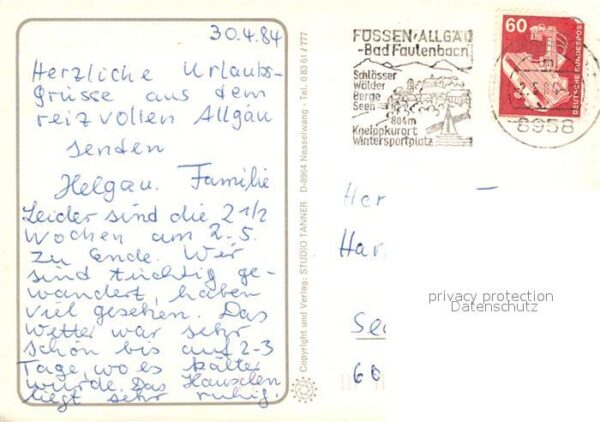 30.4.84
Herzliche Urlaubs-
grüsse aus dem
reizvollen Allgäu
senden
Helga u. Familie
Leider sind die 2 1/2
Wochen am 2.5.
zu Ende. Wir
sind tüchtig ge-
wandert, haben
viel gesehen. Das
Wetter war sehr
schön bis auf 2-3
Tage, wo es kälter
wurde. Das Häuschen
liegt sehr ruhig.
Copyright und Verlag: STUDIO TANNER D-8964 Nesselwang - Tel. 0 83 61 / 777
FÜSSEN/ALLGÄU
-Bad Faulenbach
Schlösser
Wälder
Berge
Seen
804m
Kneippkurort
Wintersportplatz
60
DEUTSCHE BUNDESPOST
8958
Her
Har
See
60
privacy protection
Datenschutz